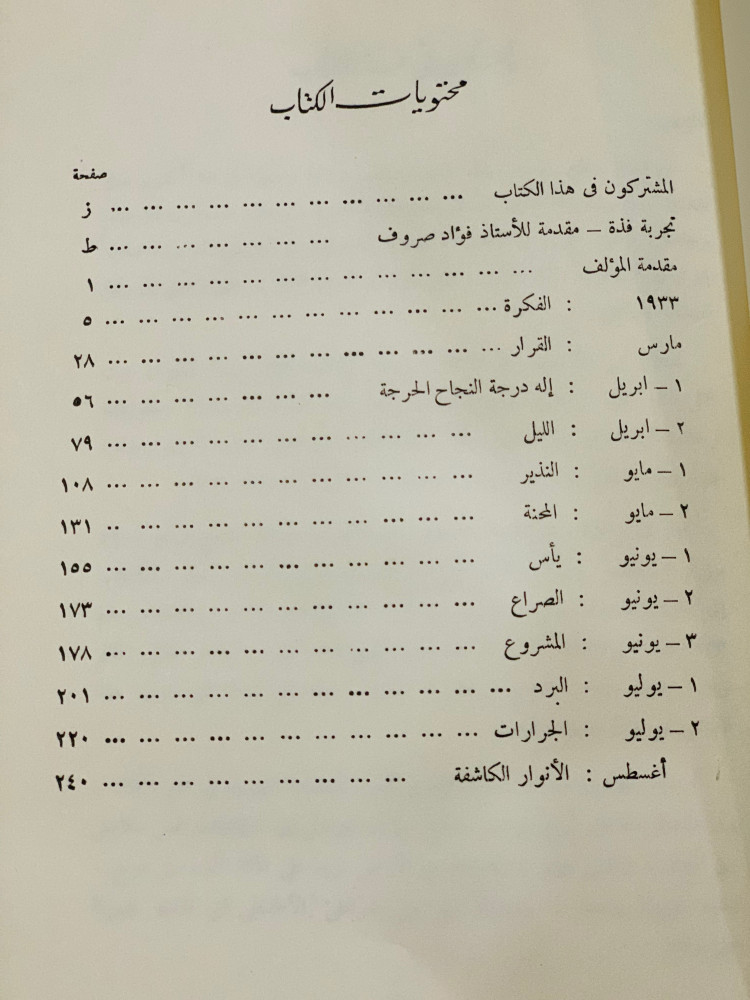 محتويات الكتاب
صفحة
المشتركون فى هذا الكتاب ... ... ... ... ... ... ... ... ... ... ... ز
تجربة فذة – مقدمة للأستاذ فؤاد صروف ... ... ... ... ... ... ... ط
مقدمة المؤلف ... ... ... ... ... ... ... ... ... ... ... ... ... ١
١٩٣٣ : الفكرة ... ... ... ... ... ... ... ... ... ... ... ... ٥
مارس : القرار ... ... ... ... ... ... ... ... ... ... ... ... ٢٨
١ – ابريل : إله درجة النجاح الحرجة ... ... ... ... ... ... ... ٥٦
٢ – ابريل : الليل ... ... ... ... ... ... ... ... ... ... ... ٧٩
١ – مايو : النذير ... ... ... ... ... ... ... ... ... ... ... ١٠٨
٢ – مايو : المحنة ... ... ... ... ... ... ... ... ... ... .. ١٣١
١ – يونيو : يأس ... ... ... ... ... ... ... ... ... ... ... ١٥٥
٢ – يونيو : الصراع ... ... ... ... ... ... ... ... ... ... ... ١٧٣
٣ – يونيو : المشروع ... ... ... ... ... ... ... ... ... ... ... ١٧٨
١ – يوليو : البرد ... ... ... ... ... ... ... ... ... ... ... ... ٢٠١
٢ – يوليو : الجرارات ... ... ... ... ... ... ... ... ... ... ... ٢٢٠
أغسطس : الأنوار الكاشفة ... ... ... ... ... ... ... ... ... ٢٤٠